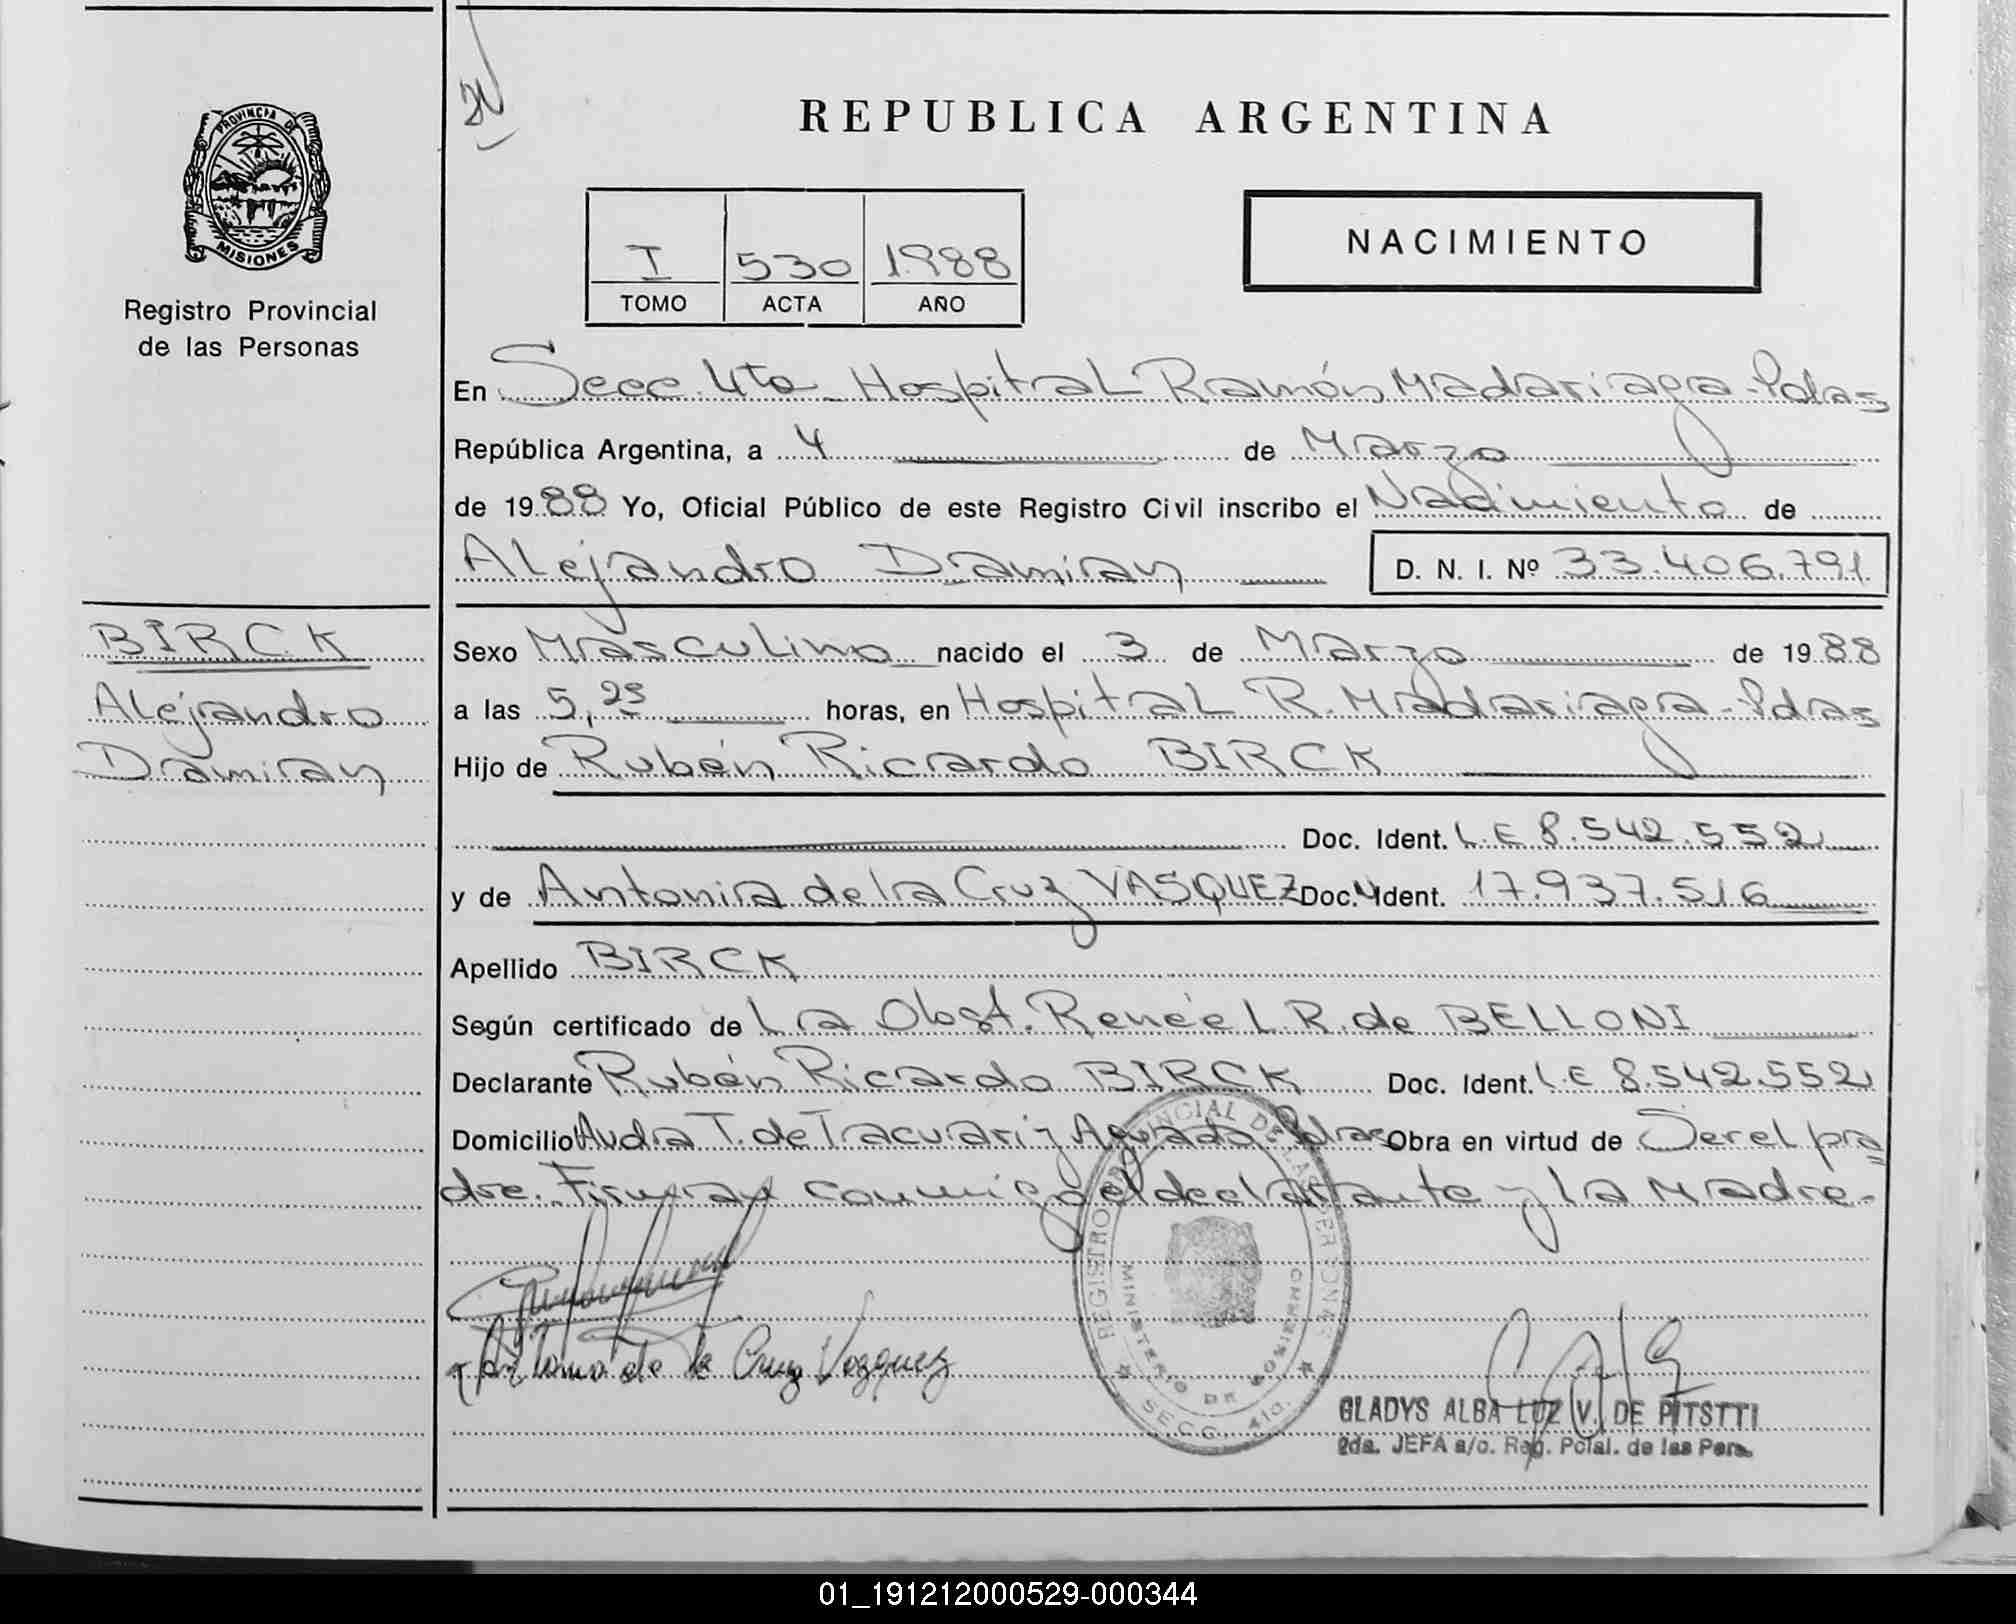 REPUBLICA ARGENTINA
PROVINCIA DE MISIONES
Registro Provincial
de las Personas
I 530 1988
TOMO ACTA AÑO
NACIMIENTO
En Secc. 4ta - Hospital Ramón Madariaga - Pdas
República Argentina, a 4 de Marzo
de 1988 Yo, Oficial Público de este Registro Civil inscribo el Nacimiento de
Alejandro Damian D. N. I. Nº 33.406.791
BIRCK
Alejandro
Damian
Sexo Masculino nacido el 3 de Marzo de 1988
a las 5,25 horas, en Hospital R. Madariaga - Pdas
Hijo de Rubén Ricardo BIRCK
Doc. Ident. L.E 8.542.552
y de Antonia de la Cruz VASQUEZ Doc. Ident. 17.937.516
Apellido BIRCK
Según certificado de La Obst. Renée L. R. de BELLONI
Declarante Rubén Ricardo BIRCK Doc. Ident. L.E 8.542.552
Domicilio Avda T. de Tacuari y Aguado Pdas Obra en virtud de Ser el pa
dre. Firman conmigo el declarante y la Madre.-
Antonia de la Cruz Vazquez
REGISTRO PROVINCIAL DE LAS PERSONAS
MINISTERIO DE GOBIERNO
SECC. 4ta.
GLADYS ALBA LUZ V. DE PITSTTI
2da. JEFA a/c. Reg. Pcial. de las Pers.
01_191212000529-000344